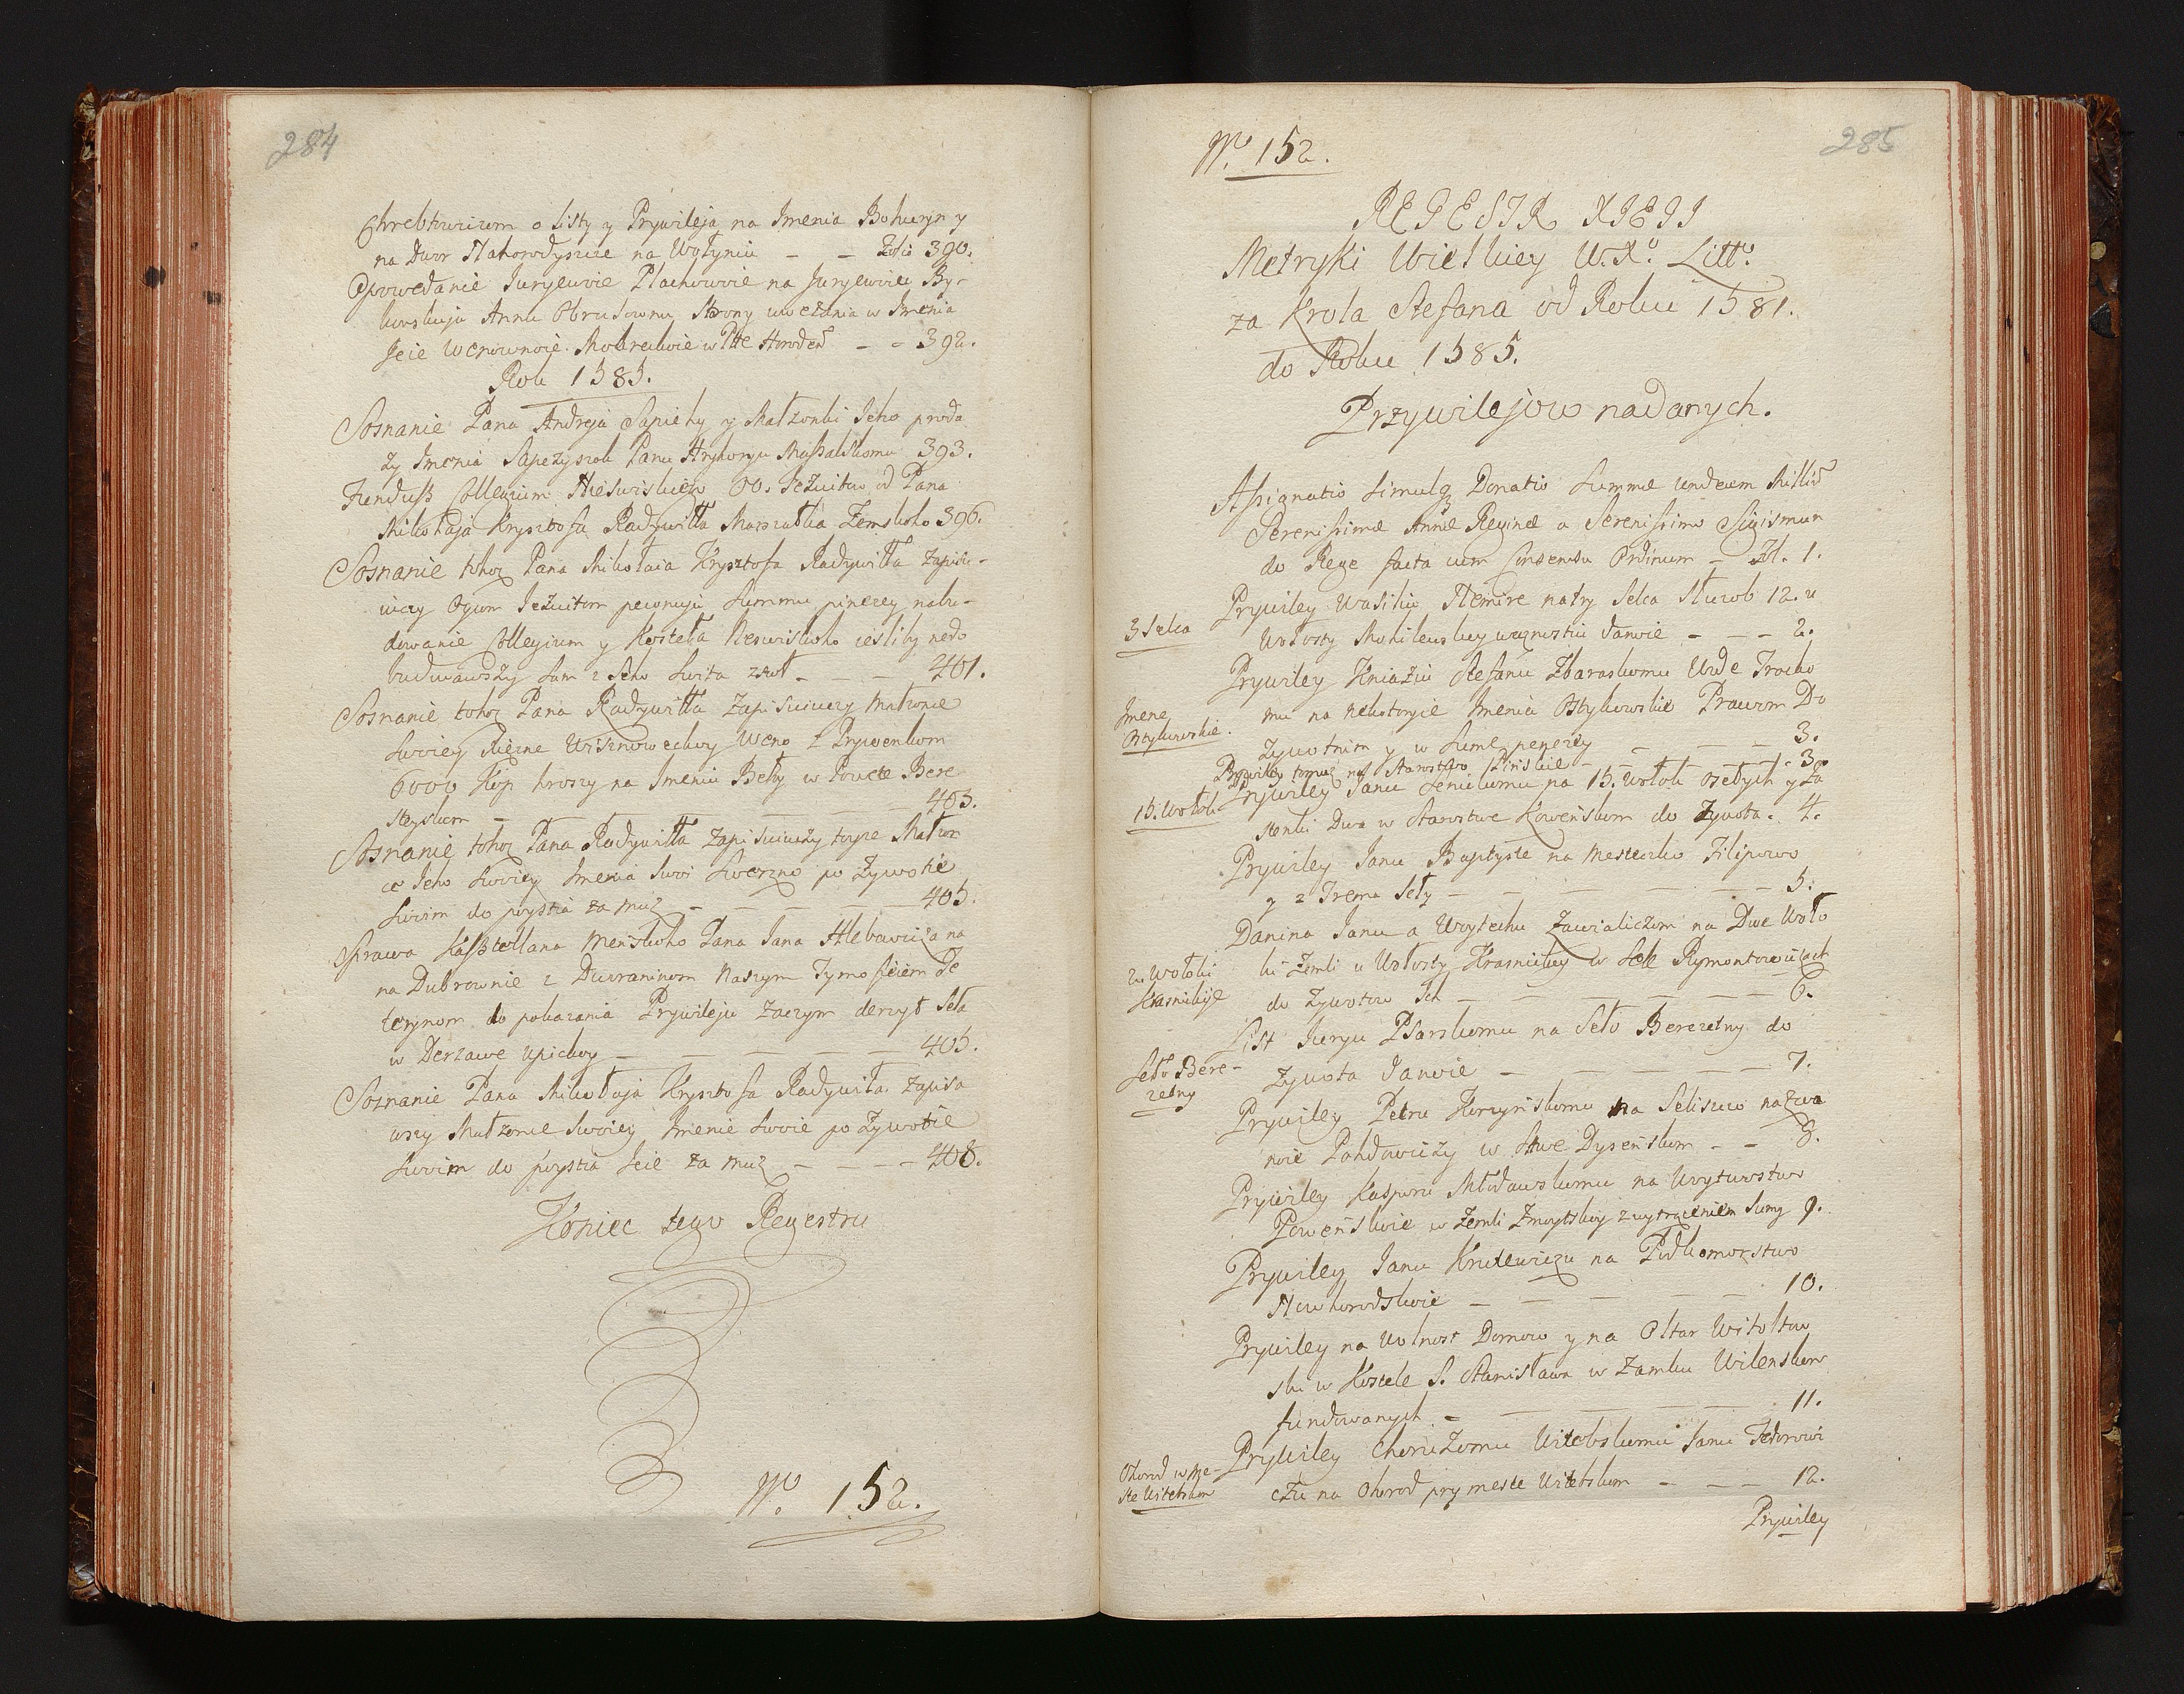 284
Chrebtowiczom o Listy y Prywileja na Imenia Bohuryn y
na Dwor Nahorodyszcze na Wołyniu - - Folio 390.
Opowedanie Juryewie Plachowoie na Juryewicy By-
kowskuju Annu Obrusownu Strony uwezania w Imenia
Jeie wenownoie Mokreckoie w Pttě Horodeň - - 392.
Rok 1585.
Soznanie Pana Andreja Sapiehy y Małzonki Jeho proda
ży Imenia Sapezyszek Panu Hryhoryu Massalskomu 393.
Fundusz Collegium Nieswiskich OO. Jezuitow od Pana
Mikołaja Krysztofa Radywiłła Marszałka Zemskoho 396.
Soznanie tohoż Pana Mikołaia Krysztofa Radywiłła zapisu-
iuczy Oycom Jezuitom pewnuju Summu pinezey nabu-
dowanie Collegium y Kosteła Neswiskoho iesliby nedo
budowawszy Sam z Seho Swita zszoł - - - 401.
Soznanie tohoż Pana Radywiłła Zapisuiuczy Małzonce
Swoiey Kiężne Wisznoweckoy Weno z Prywenkom
6000 Kop hroszy na Imeniu Bełoy w Powete Bere
steyskom - - - - - 403.
Soznanie tohoż Pana Radywiłła zapisuiuczy tojże Małżon
ce Jeho Swoiey Imenia Swoi Swerzno po Zywotie
Swoim do poystia za Muż - - - - 405.
Sprawa Kasztellana Menskoho Pana Jana Hlebowicza na
na Dubrownie z Dworaninom Naszym Tymofeiem Te
terynom do pokazania Prywileju Zaczym derzyt Seła
w Derzawe Upickoy - - - - - 405.
Soznanie Pana Mikołaja Krysztofa Radywiła zapisa
wszy Małzonce Swoiey Imenie Swoie po Zywotie
Swoim do poystia Jeie za Muż - - - - 408.
Koniec tego Regestru
No. 152.
285
No. 152.
REGESTR XIĘGI
Metryki Wielkiey W. Xo. Litto.
za Krola Stefana od Roku 1581.
do Roku 1585.
Przywilejow nadanych.
Assignatio simulq Donatio Summæ undecim Millið
Serenissimæ Annæ Reginæ a Serenissimo Sigismun
do Rege facta cum Consensu Ordinum - Fol. 1.
3 Selca
Prywiley Wasiliu Nemire natry Selca Służob 12. u
Wołosty Mohilewskoy wecznostiu danoie - - - 2.
Prywiley Kniaziu Stefanu Zbaraskomu Wode Trocko
Imene
Ostykowskie.
mu na nekotoryie Imenia Ostykowskie Prawom Do
Zywotnim y w Sume penezey - - - 3.
Prywiley tomuż na Starostwo Pinskie - - - 3.
15. Wołok
Prywiley Janu Senickomu na 15. Wołok osełych y Za
stenki Dwa w Starostwe Kowenskom do Zywota. 4.
Prywiley Janu Baptyste na Mesteczko Filipowo
y z Trema Seły - - - - - 5.
Danina Janu a Woytechu Zawialiczom na Dwe Woło
2. Wołoki
Krasnickije
ki Zemli u Wołosty Krasnickoy w Sele Rymontowicżach
do Zywotow Ich - - - - - 6.
List Juryu Psarskomu na Seło Berezetny do
Seło Bere-
zetny
Zywota Danoie - - - - - 7.
Prywiley Petru Korzynskomu na Seliszczo nazwa
noie Pohdowiczy w Stwe Dysenskom - - 8.
Prywiley Kasporu Młodawskomu na Woytowstwo
Gowenskoie w Zemli Zmoytskoy zwytrącieniem Sumy 9.
Prywiley Janu Krutewiczu na Podkomorstwo
Nowhorodskoie - - - - - 10.
Prywiley na Wolnost Domow y na Oltar Witoltow
ski w Kostele S. Stanisława w Zamku Wilenskom
fundowanych - - - - - 11.
Ohorod w Me-
ste Witebskom
Prywiley Choruzomu Witebskomu Janu Fedorowi
czu na Ohorod pry meste Witebskom - - - 12.
Prywiley